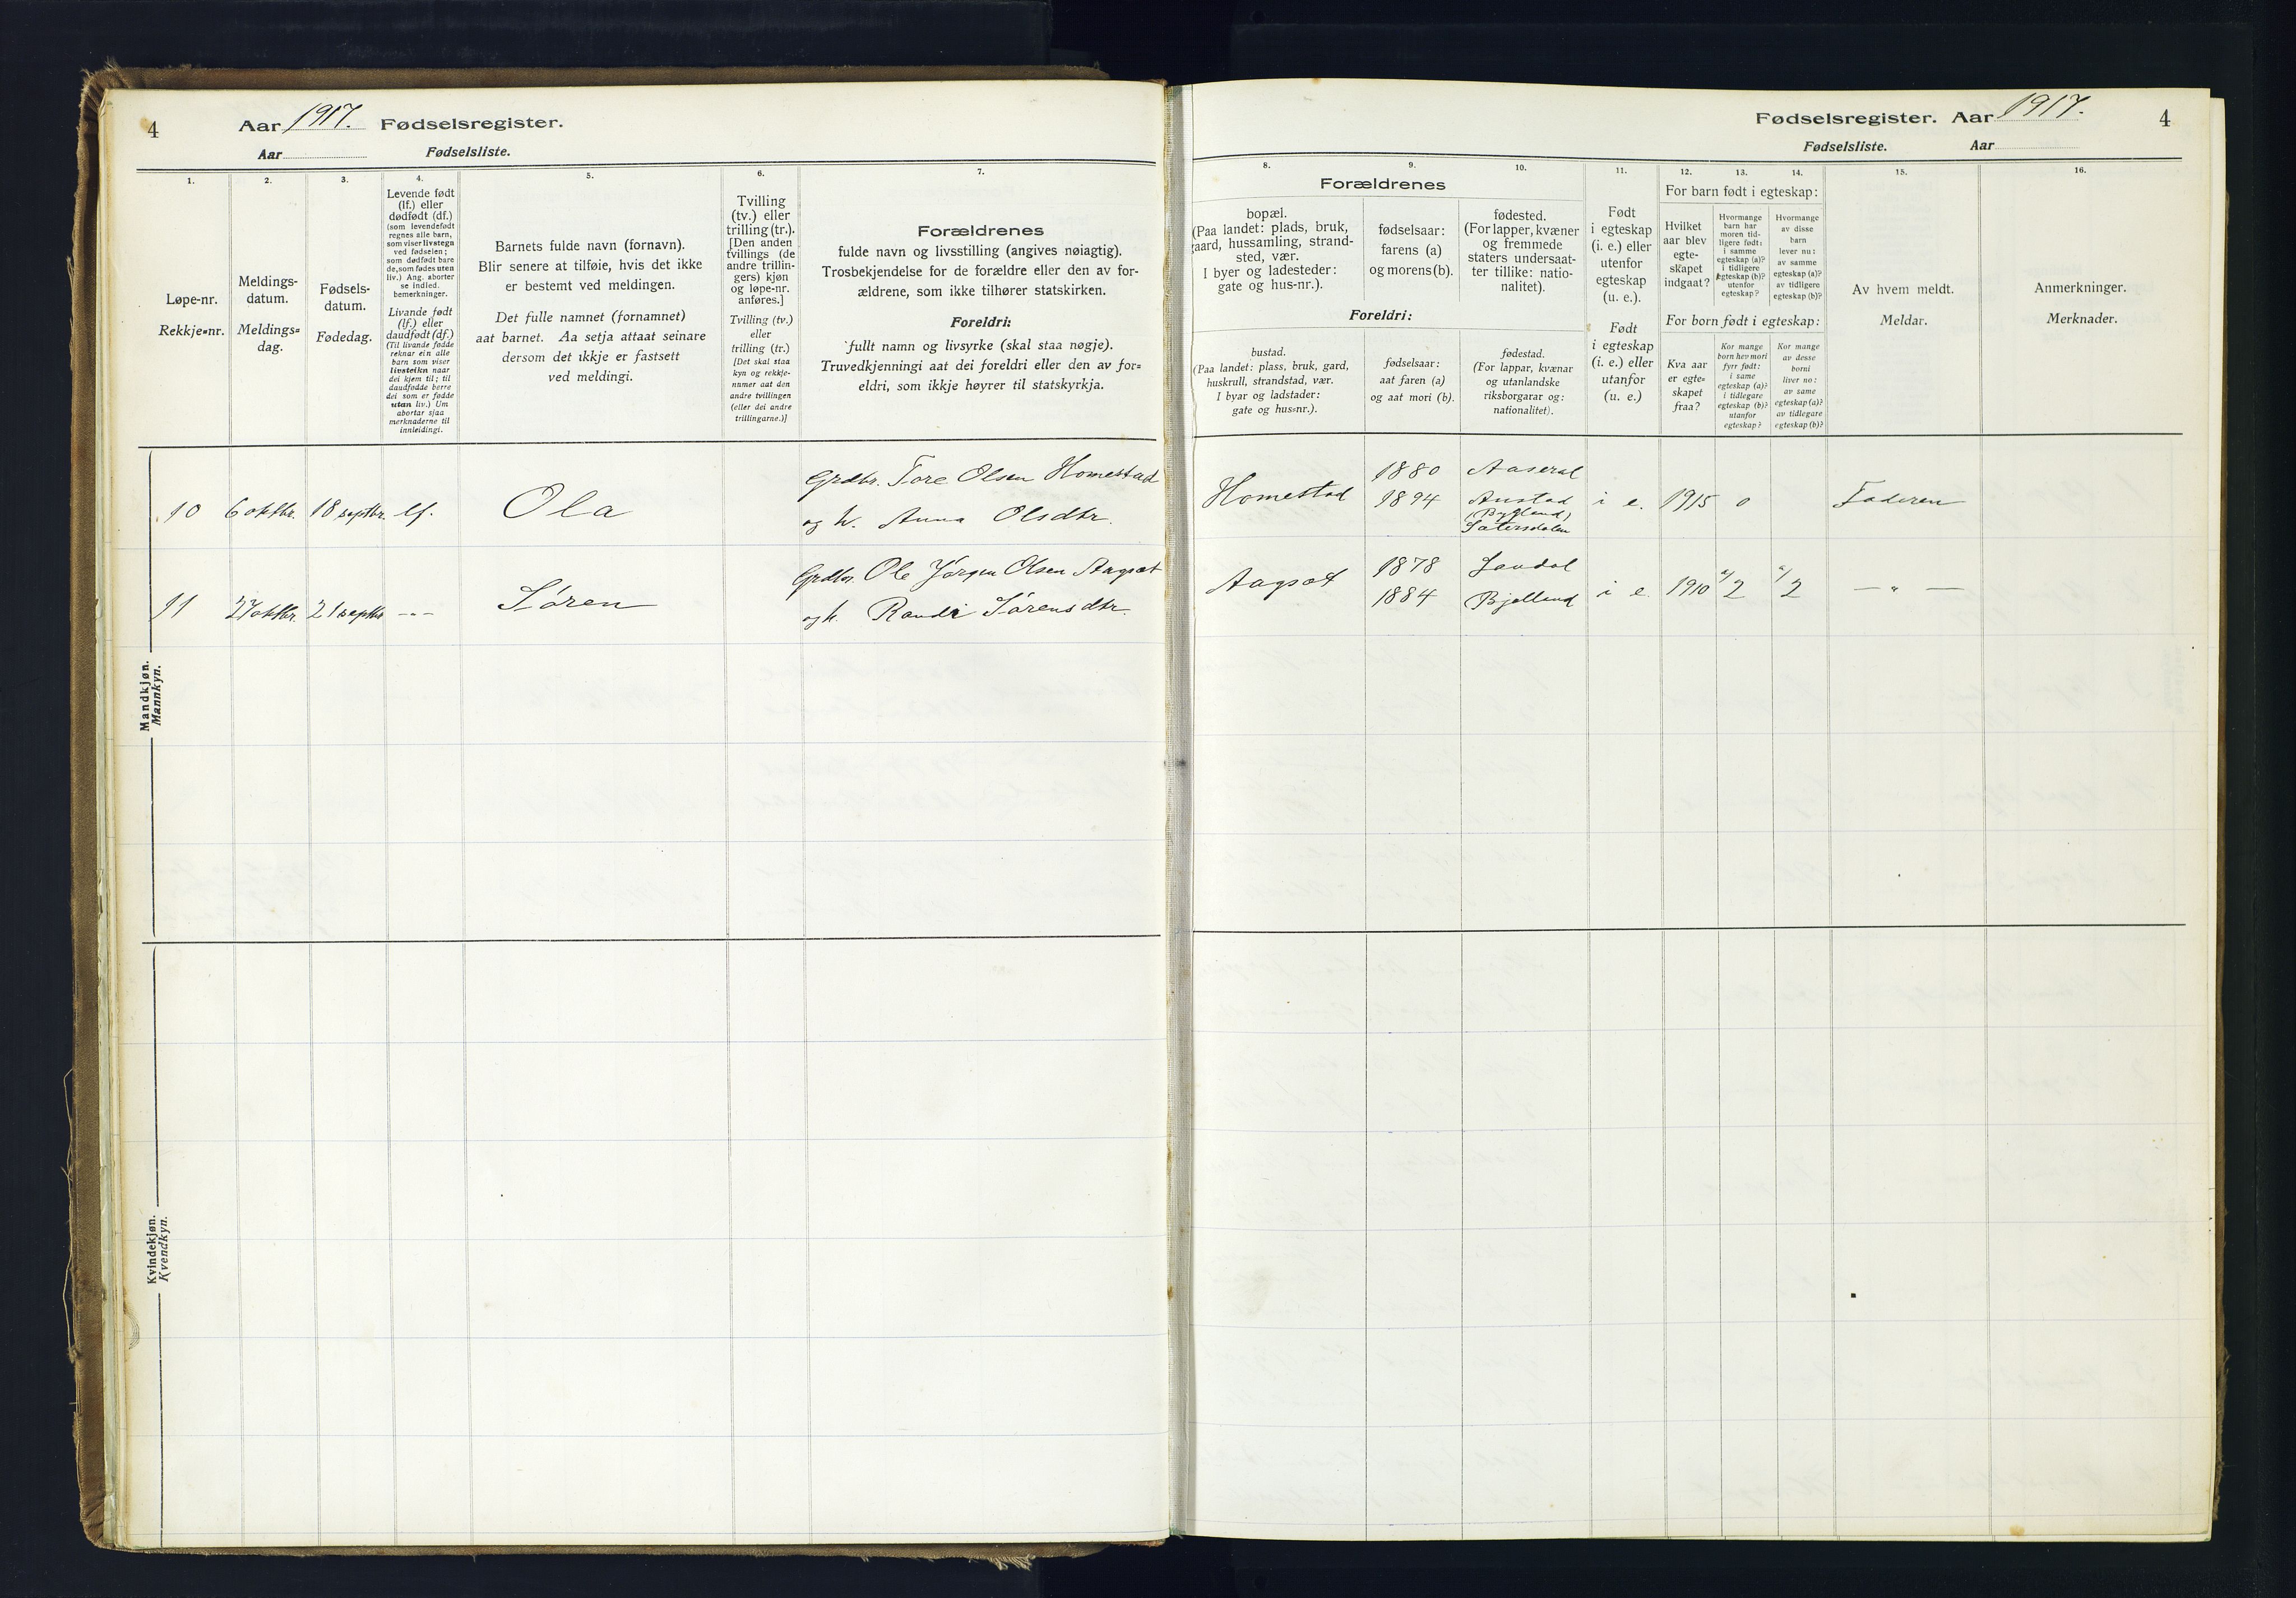 4
Aar 1917. Fødselsregister.
Aar Fødselsliste.
1.
2.
3.
4.
5.
6.
7.
Løpe-nr.
Rekkje=nr.
Meldings-
datum.
Meldings=
dag.
Fødsels-
datum.
Fødedag.
Levende født
(lf.) eller
dødfødt (df.)
(som levendefødt
regnes alle barn,
som viser livstegn
ved fødselen;
som dødfødt bare
de, som fødes uten
liv.) Ang. aborter
se indled.
bemerkninger.
Livande født
(lf.) eller
daudfødt (df.)
(Til livande fødde
reknar ein alle
barn som viser
livsteikn naar
dei kjem til; til
daudfødde berre
dei som er fødde
utan liv.) Um
abortar sjaa
merknaderne til
innleidingi.
Barnets fulde navn (fornavn).
Blir senere at tilføie, hvis det ikke
er bestemt ved meldingen.
Det fulle namnet (fornamnet)
aat barnet. Aa setja attaat seinare
dersom det ikkje er fastsett
ved meldingi.
Tvilling
(tv.) eller
trilling (tr.).
[Den anden
tvillings (de
andre trillin-
gers) kjøn
og løpe-nr.
anføres.]
Tvilling (tv.)
eller
trilling (tr.)
[Det skal staa
kyn og rekkje-
nummer aat den
andre tvillingen
(eller dei andre
trillingarne.)]
Forældrenes
fulde navn og livsstilling (angives nøiagtig).
Trosbekjendelse for de forældre eller den av for-
ældrene, som ikke tilhører statskirken.
Foreldri:
fullt namn og livsyrke (skal staa nøgje).
Truvedkjenningi aat dei foreldri eller den av for=
eldri, som ikkje høyrer til statskyrkja.
Mandkjøn.
Mannkyn.
10 6 oktbr. 18 septbr. lf. Ola Grdbr. Tore Olsen Homestad
og h. Anna Olsdtr.
11 27 oktbr. 21 septbr. -"- Søren Grdbr. Ole Jørgen Olsen Aagsæt
og h. Randi Sørensdtr.
Kvindekjøn.
Kvendkyn.
Fødselsregister. Aar 1917. 4
Fødselsliste. Aar
8.
9.
10.
11.
12.
13.
14.
15.
16.
Forældrenes
bopæl.
(Paa landet: plads, bruk,
gaard, hussamling, strand-
sted, vær.
I byer og ladesteder:
gate og hus-nr.).
fødselsaar:
farens (a)
og morens (b).
fødested.
(For lapper, kvæner
og fremmede
staters undersaat-
ter tillike: natio-
nalitet).
Foreldri:
bustad.
(Paa landet: plass, bruk, gard,
huskrull, strandstad, vær.
I byar og ladstader:
gate og hus=nr.).
fødselsaar:
aat faren (a)
og aat mori (b).
fødestad.
(For lappar, kvænar
og utanlandske
riksborgarar og:
nationalitet).
Født
i egteskap
(i. e.) eller
utenfor
egteskap
(u. e.).
Født
i egteskap
(i. e.) eller
utanfor
(u. e.)
For barn født i egteskap:
Hvilket
aar blev
egte-
skapet
indgaat?
Hvormange
barn har
moren tid-
ligere født:
i samme
egteskap (a)?
i tidligere
egteskap (b)?
utenfor
egteskap?
Hvormange
av disse
barn
lever nu:
av samme
egteskap (a)?
av tidligere
egteskap (b)?
For born født i egteskap:
Kva aar
er egte=
skapet
fraa?
Kor mange
born hev mori
fyrr født:
i same
egteskap (a)?
i tidlegare
egteskap (b)?
utanfor
egteskap?
Kor mange
av desse
borni
liver no:
av same
egteskap (a)?
av tidlegare
egteskap (b)?
Av hvem meldt.
Meldar.
Anmerkninger.
Merknader.
Homestad 1880 Aaseral
1894 Austad i e. 1915 0 Faderen
(Bygland)
Sætersdalen
Aagsæt 1878 Laudal
1884 Bjelland i e. 1910 a/2 a/2 — " —